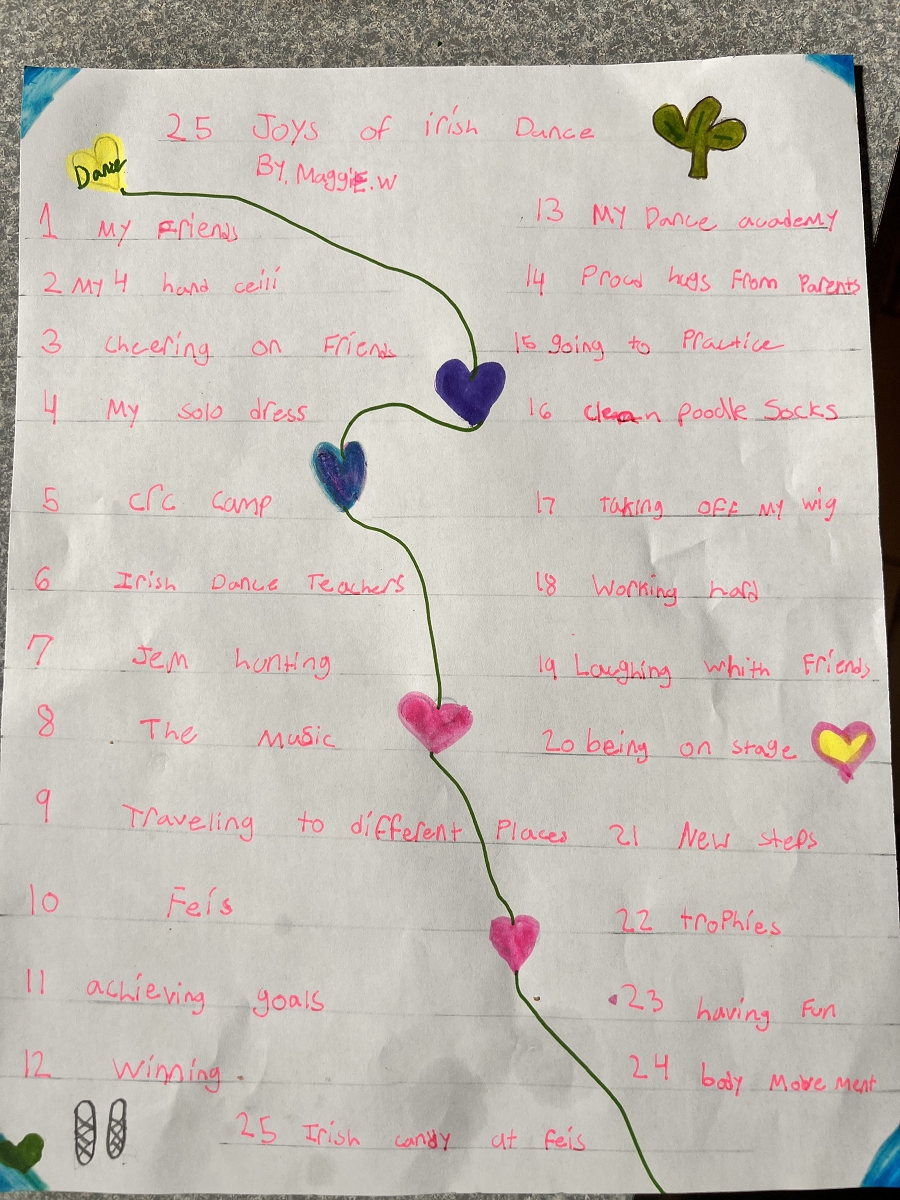 25 Joys of irish Dance
By, Maggie.w
Dance
1 My Friends
2 My 4 hand ceili
3 cheering on Friends
4 My solo dress
5 crc camp
6 Irish Dance Teachers
7 Jem hunting
8 The Music
9 Traveling to different Places
10 Feis
11 achieving goals
12 Winning.
13 My Dance academy
14 Proud hugs From Parents
15 going to Practice
16 clean poodle Socks
17 Taking OFF My wig
18 Working hard
19 Laughing whith Friends
20 being on stage
21 New steps
22 trophies
23 having Fun
24 body Movement
25 Irish candy at feis